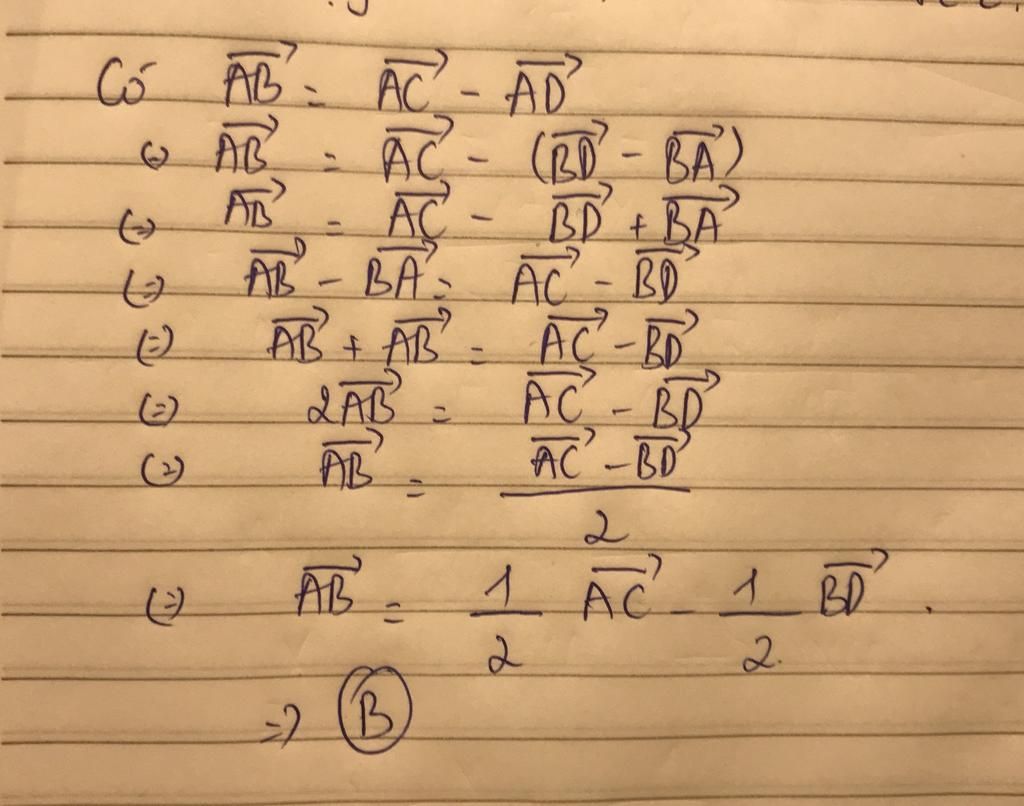 Có $\overrightarrow{AB} = \overrightarrow{AC} - \overrightarrow{AD}$
(=) $\overrightarrow{AB} = \overrightarrow{AC} - (\overrightarrow{BD} - \overrightarrow{BA})$
(=) $\overrightarrow{AB} = \overrightarrow{AC} - \overrightarrow{BD} + \overrightarrow{BA}$
(=) $\overrightarrow{AB} - \overrightarrow{BA} = \overrightarrow{AC} - \overrightarrow{BD}$
(=) $\overrightarrow{AB} + \overrightarrow{AB} = \overrightarrow{AC} - \overrightarrow{BD}$
(=) $2\overrightarrow{AB} = \overrightarrow{AC} - \overrightarrow{BD}$
(=) $\overrightarrow{AB} = \frac{\overrightarrow{AC} - \overrightarrow{BD}}{2}$
(=) $\overrightarrow{AB} = \frac{1}{2} \overrightarrow{AC} - \frac{1}{2} \overrightarrow{BD}$ .
=) B